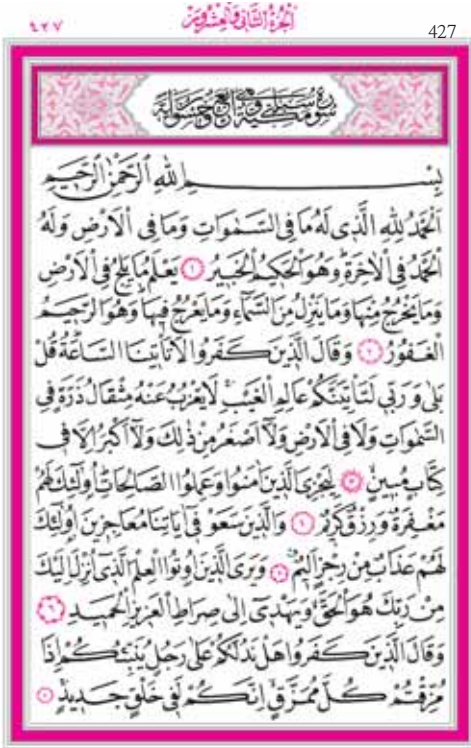 ٤٢٧
اَلْجُزْءُ الثَّانِي وَالْعِشْرُونَ
427
سُورَةُ سَبَأٍ مَكِّيَّةٌ وَهِيَ اَرْبَعٌ وَخَمْسُونَ اٰيَةً
بِسْمِ اللّٰهِ الرَّحْمٰنِ الرَّحِيمِ
اَلْحَمْدُ لِلّٰهِ الَّذِي لَهُ مَا فِي السَّمٰوَاتِ وَمَا فِي الْاَرْضِ وَلَهُ
الْحَمْدُ فِي الْاٰخِرَةِ وَهُوَ الْحَكِيمُ الْخَبِيرُ ١ يَعْلَمُ مَا يَلِجُ فِي الْاَرْضِ
وَمَا يَخْرُجُ مِنْهَا وَمَا يَنْزِلُ مِنَ السَّمَاءِ وَمَا يَعْرُجُ فِيهَا وَهُوَ الرَّحِيمُ
الْغَفُورُ ٢ وَقَالَ الَّذِينَ كَفَرُوا لَا تَأْتِينَا السَّاعَةُ قُلْ
بَلٰى وَرَبِّي لَتَأْتِيَنَّكُمْ عَالِمِ الْغَيْبِ لَا يَعْزُبُ عَنْهُ مِثْقَالُ ذَرَّةٍ فِي
السَّمٰوَاتِ وَلَا فِي الْاَرْضِ وَلَا اَصْغَرُ مِنْ ذٰلِكَ وَلَا اَكْبَرُ اِلَّا فِي
كِتَابٍ مُبِينٍ ٣ لِيَجْزِيَ الَّذِينَ اٰمَنُوا وَعَمِلُوا الصَّالِحَاتِ اُولٰئِكَ لَهُمْ
مَغْفِرَةٌ وَرِزْقٌ كَرِيمٌ ٤ وَالَّذِينَ سَعَوْ فِي اٰيَاتِنَا مُعَاجِزِينَ اُولٰئِكَ
لَهُمْ عَذَابٌ مِنْ رِجْزٍ اَلِيمٌ ٥ وَيَرَى الَّذِينَ اُوتُوا الْعِلْمَ الَّذِي اُنْزِلَ اِلَيْكَ
مِنْ رَبِّكَ هُوَ الْحَقَّ وَيَهْدِي اِلٰى صِرَاطِ الْعَزِيزِ الْحَمِيدِ ٦
وَقَالَ الَّذِينَ كَفَرُوا هَلْ نَدُلُّكُمْ عَلٰى رَجُلٍ يُنَبِّئُكُمْ اِذَا
مُزِّقْتُمْ كُلَّ مُمَزَّقٍ اِنَّكُمْ لَفِي خَلْقٍ جَدِيدٍ ٧